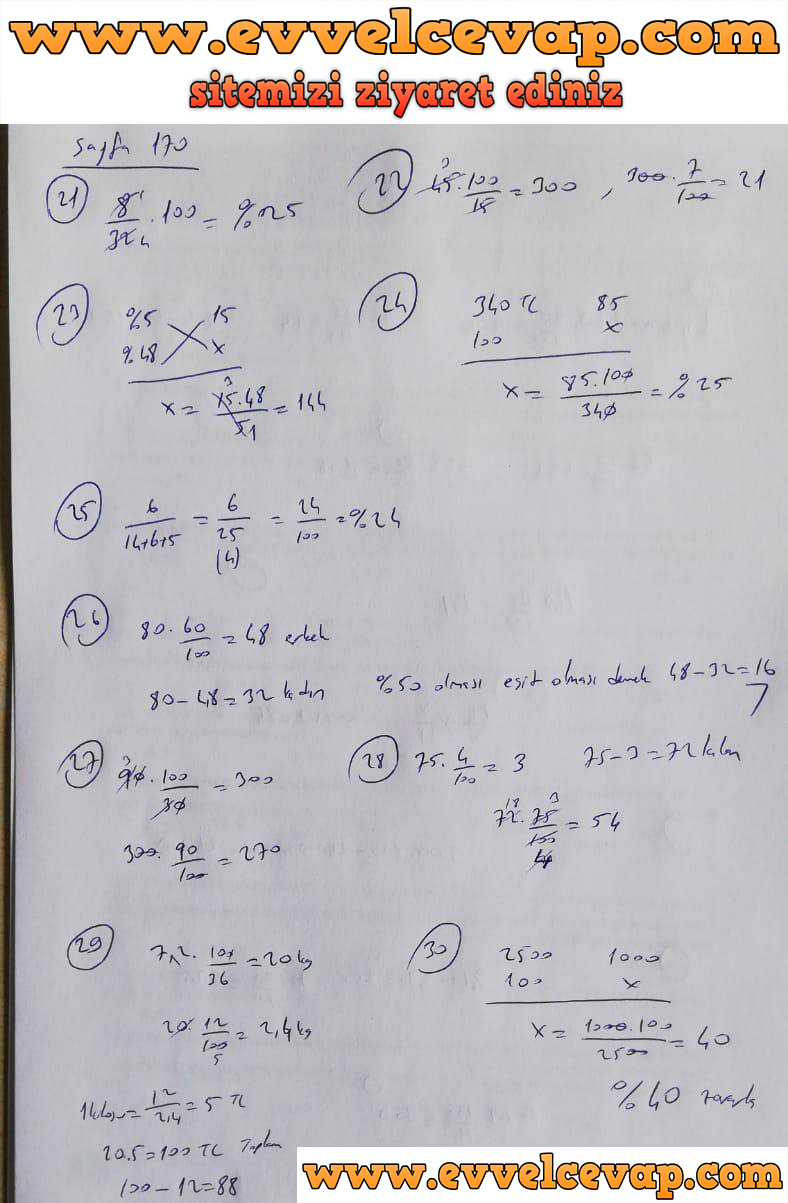 www.evvelcevap.com
sitemizi ziyaret ediniz
Sayfa 170
21 8/32 . 100 = %25
22 45.100/15 = 300 , 300 . 7/100 = 21
23 %5 15
%48 x
x = 15.48/5 = 144
24 340 TL 85
100 x
x = 85.100/340 = %25
25 6/14+6+5 = 6/25 = 24/100 = %24
(4)
26 80 . 60/100 = 48 erkek
80 - 48 = 32 kadın
%50 olması eşit olması demek 48 - 32 = 16
27 90 . 100/30 = 300
300 . 90/100 = 270
28 75 . 4/100 = 3 75 - 3 = 72 kalan
72 . 75/100 = 54
29 7,2 . 100/36 = 20 kg
20 . 12/100 = 2,4 kg
1 kilosu = 12/2,4 = 5 TL
20.5 = 100 TL Toplam
100 - 12 = 88
30 2500 1000
100 x
x = 1000.100/2500 = 40
%40 zararla
www.evvelcevap.com